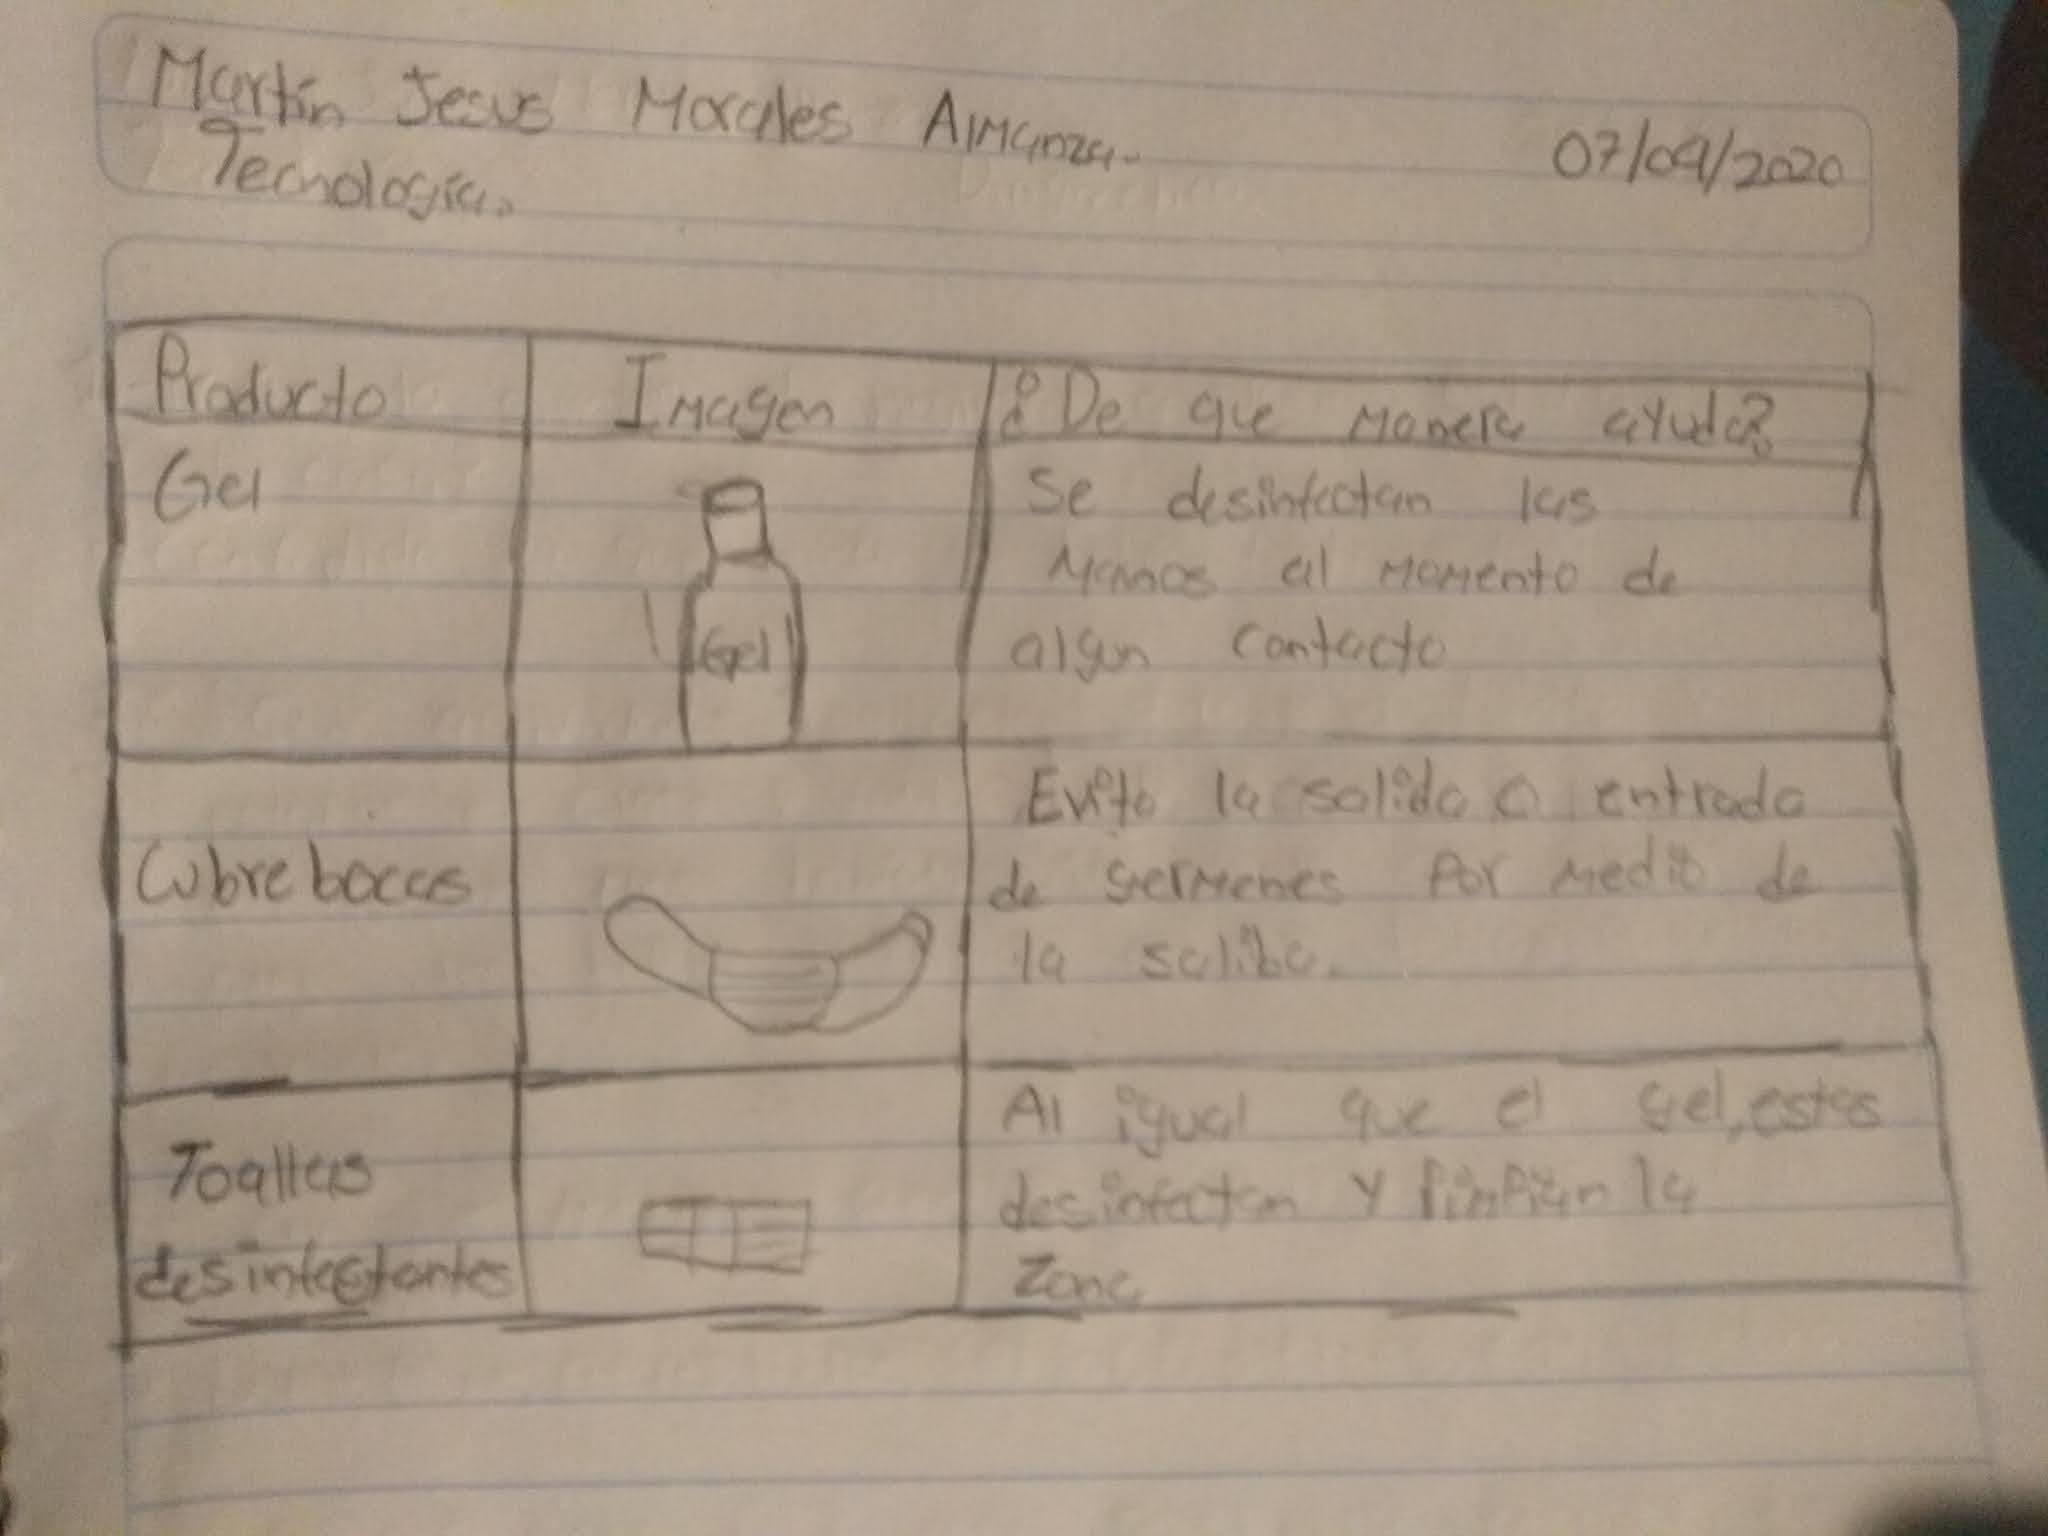 Martín Jesus Morales Almanza.
07/09/2020
Tecnología.
Producto
Imagen
¿De que manera ayuda?
Gel
Gel
Se desinfectan las
manos al momento de
algun contacto
Cubre bocas
Evita la salida o entrada
de germenes por medio de
la saliba.
Toallas
desinfectantes
Al igual que el gel, estas
desinfectan y limpian la
zona